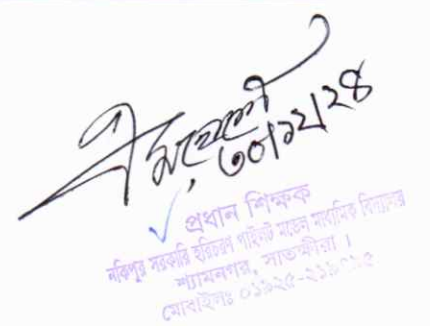 ৩০।১২।২৪
প্রধান শিক্ষক
নকিপুর সরকারি হরিচরণ পাইলট মডেল মাধ্যমিক বিদ্যালয়
শ্যামনগর, সাতক্ষীরা।
মোবাইলঃ